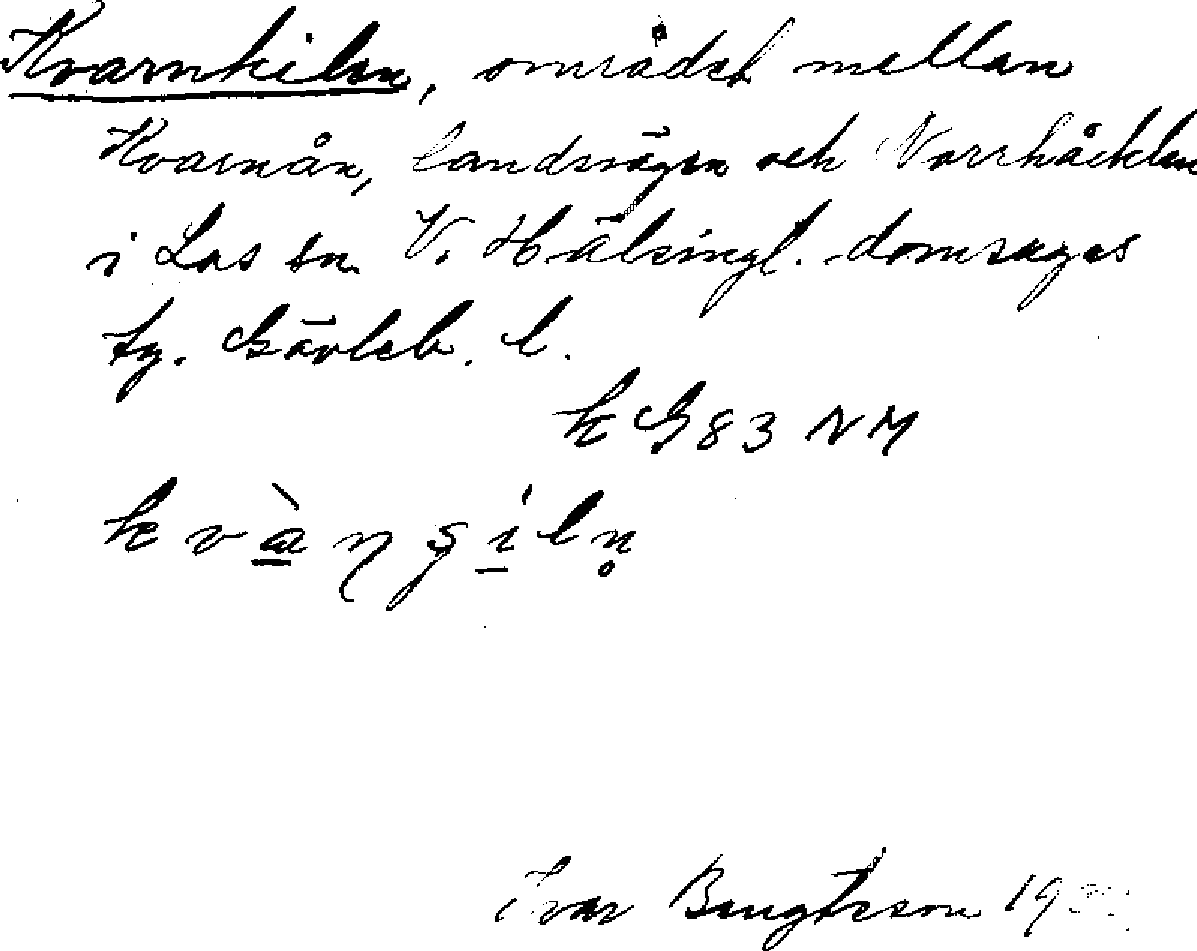 Kvarnkilen, området mellan
Kvarnån, landsvägen och Norrhäcklen
i Los sn. V. Hälsingl. domsagas
tg. Gävleb. l.
k G 83 NM
kvàn̠şiln̥
Ivar Bengtsson 19